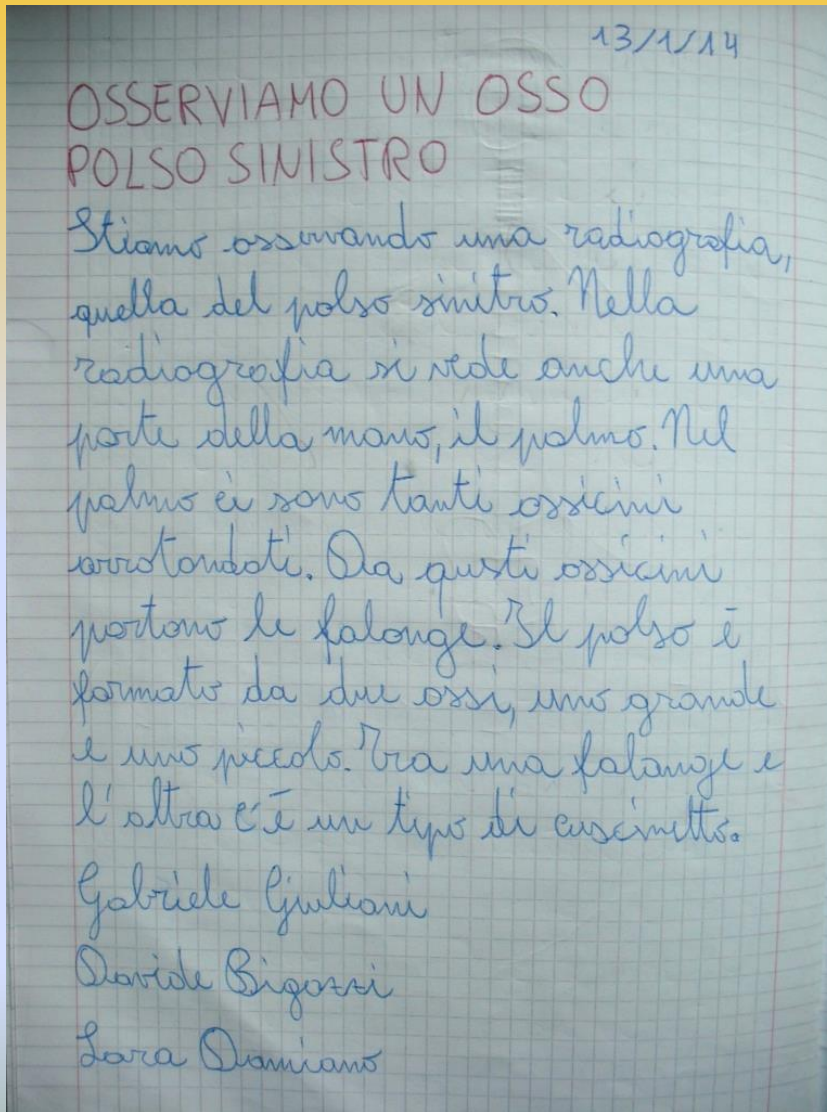 13/1/14
OSSERVIAMO UN OSSO
POLSO SINISTRO
Stiamo osservando una radiografia,
quella del polso sinitro. Nella
radiografia si vede anche una
parte della mano, il palmo. Nel
palmo ci sono tanti ossicini
arrotondati. Da questi ossicini
partono le falangi. Il polso è
formato da due ossi, uno grande
e uno piccolo. Tra una falange e
l'altra c'è un tipo di cuscinetto.
Gabriele Giuliani
Davide Bigozzi
Lara Damiano